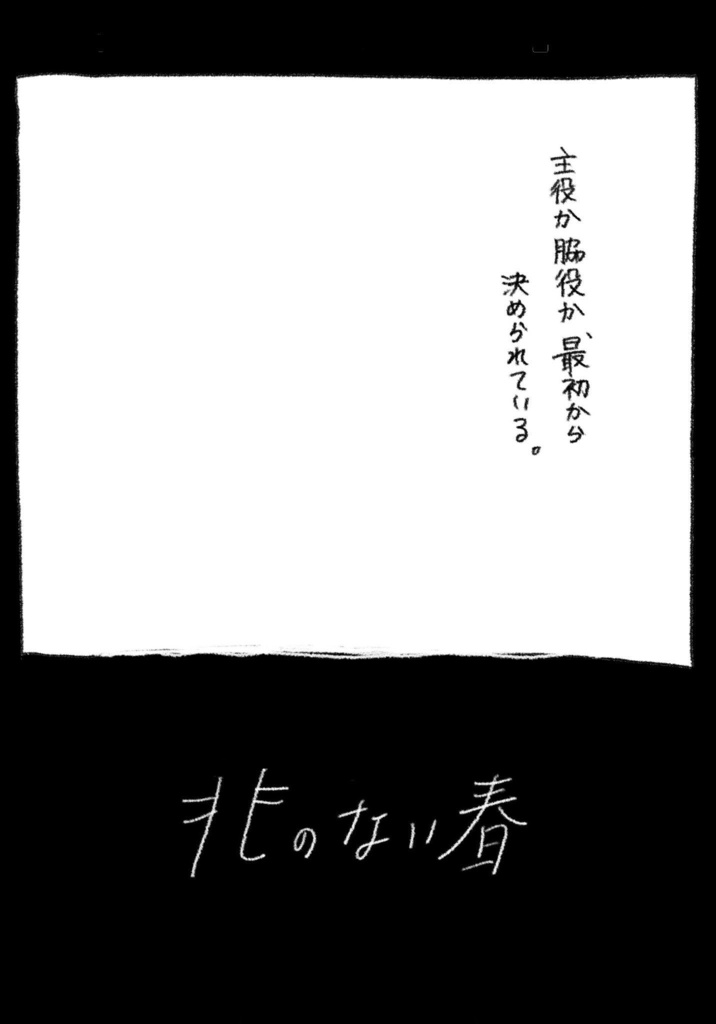 主役か脇役か、最初から
決められている。
非のない春